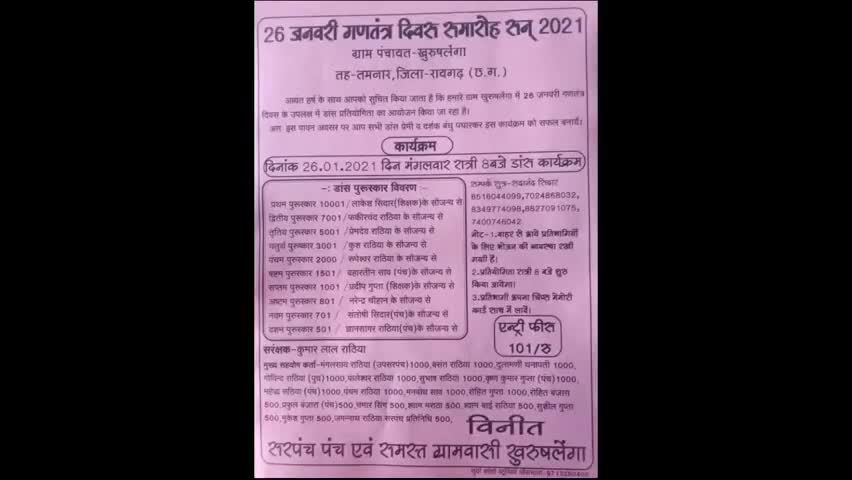 26 जनवरी गणतंत्र दिवस समारोह सन् 2021
ग्राम पंचायत-खुरुषलेंगा
तह-तमनार,जिला-रायगढ़ (छ.ग.)
अत्यंत हर्ष के साथ आपको सुचित किया जाता है कि हमारे ग्राम खुरुषलेंगा में 26 जनवरी गणतंत्र
दिवस के उपलक्ष में डांस प्रतियोगिता का आयोजन किया जा रहा है।
अतः इस पावन अवसर पर आप सभी डांस प्रेमी व दर्शक बंधु पधारकर इस कार्यक्रम को सफल बनायें।
कार्यक्रम
दिनांक 26.01.2021 दिन मंगलवार रात्री 8बजे डांस कार्यक्रम
-: डांस पुरूस्कार विवरण :-
प्रथम पुरूस्कार 10001/लाकेश सिदार(शिक्षक)के सौजन्य से
द्वितीय पुरूस्कार 7001/फकीरचंद राठिया के सौजन्य से
तृतिय पुरूस्कार 5001/प्रेमदेव राठिया के सौजन्य से
चतुर्थ पुरूष्कार 3001/कुश राठिया के सौजन्य से
पंचम पुरूस्कार 2000/रूपेश्वर राठिया के सौजन्य से
षष्ठम पुरूस्कार 1501/ब‌हारतीन साव (पंच)के सौजन्य से
सप्तम पुरूस्कार 1001/प्रदीप गुप्ता (शिक्षक)के सौजन्य से
अष्टम पुरूस्कार 801/ नरेन्द्र चौहान के सौजन्य से
नवम पुरूस्कार 701/ संतोषी सिदार(पंच)के सौजन्य से
दशम पुरूस्कार 501/ ज्ञानसागर राठिया(पंच)के सौजन्य से
सम्पर्क सुत्र-सदानंद सिदार
6516044099,7024868032,
8349774098,8827091075,
7400746042
नोट-1.बाहर से आये प्रतिभागियों
के लिए भोजन की व्यवस्था रखी
गयी है।
2.प्रतियोगिता रात्री 8 बजे शुरु
किया जायेगा।
3.प्रतिभागी अपना चिप्स मेमोरी
कार्ड साथ में लावें।
एन्ट्री फीस
101/रु
सरंक्षक-कुमार लाल राठिया
मुख्य सहयोग कर्ता-मंगलसाय राठिया (उपसरपंच)1000,बसंत राठिया 1000,दुलामणी धनापती 1000,
गोविन्द राठिया (पुच)1000,पालेश्वर राठिया 1000,सुभाष राठिया 1000,कृष्ण कुमार गुप्ता (पंच)1000,
महेन्द्र राठिया (पंच)1000,पंचम राठिया 1000,मनबोध साव 1000,रोहित गुप्ता 1000,रोहित बंजारा
500,प्रफुल बंजारा (पंच)500,चमार सिंग 500,श्याम मराठा 500,श्याम बाई राठिया 500,सुशील गुप्ता
500,मुकेश गुप्ता 500,जगन्नाथ राठिया सरपंच प्रतिनिधि 500,
विनीत
सरपंच पंच एवं समस्त ग्रामवासी खुरुषलेंगा